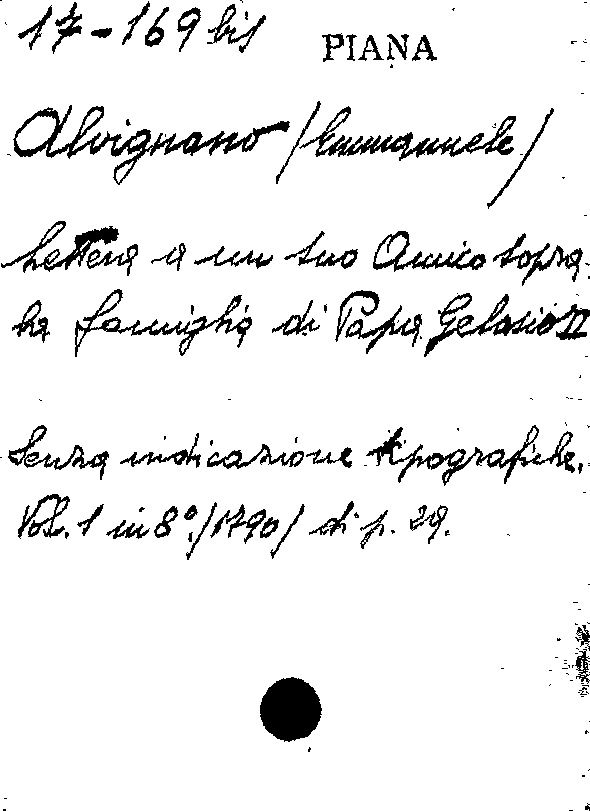 17-169 bis PIANA
Alvignano /Emmanuele/
Lettera a un suo Amico sopra
la famiglia di Papa Gelasio II
Senza indicazione tipografiche.
Vol. 1 in 8º. /1790/ di p. 29.